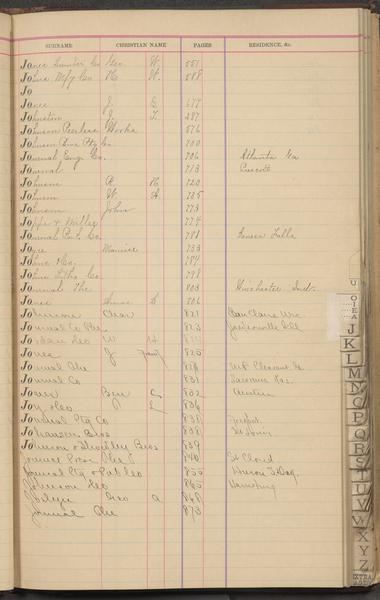 SURNAME CHRISTIAN NAME PAGES RESIDENCE, &c.
Jones Lumber Co Geo W. 551
Johns Mfg Co H W. 588
Jo
Jones J. E. 677
Johnston J. T. 287
Johnson Peerless Works 576
Johnson Bros Ptg Co 700
Journal Engr Co. 706 Atlanta Ga
Journal 713 Prescott
Johnson R H. 720
Johnson W. A. 725
Johnson John 773
Jopp & Miller 774
Journal Pub. Co. 788 Seneca Falls
Joyce Maurice 733
Johns & Co. 784
John Litho Co. 798
Journal The 803 Winchester Ind.
Jones 806
Johnson Chas 821 Eau Claire Wis.
Journal Co The 823 Jacksonville Ill
Jordan Geo W H 811
Jones J 825
Journal The 828 Mt Pleasant
Journal Co 831 Kas.
Jones Benj C. 832
Joy & Co L 836
Journal Ptg Co 838
Johansen Bros 838 St Louis
Johnson & Bros 839
Journal Press The 840 St Cloud
Journal Ptg & Pub Co 855 Huron S Dak
Johnson Geo 865
Geo A 868
Journal The 873
U
O
I
E
A
J
K
L
M
N
O
P
Q
R
S
T
U
V
W
X
Y
Z
EXTRA